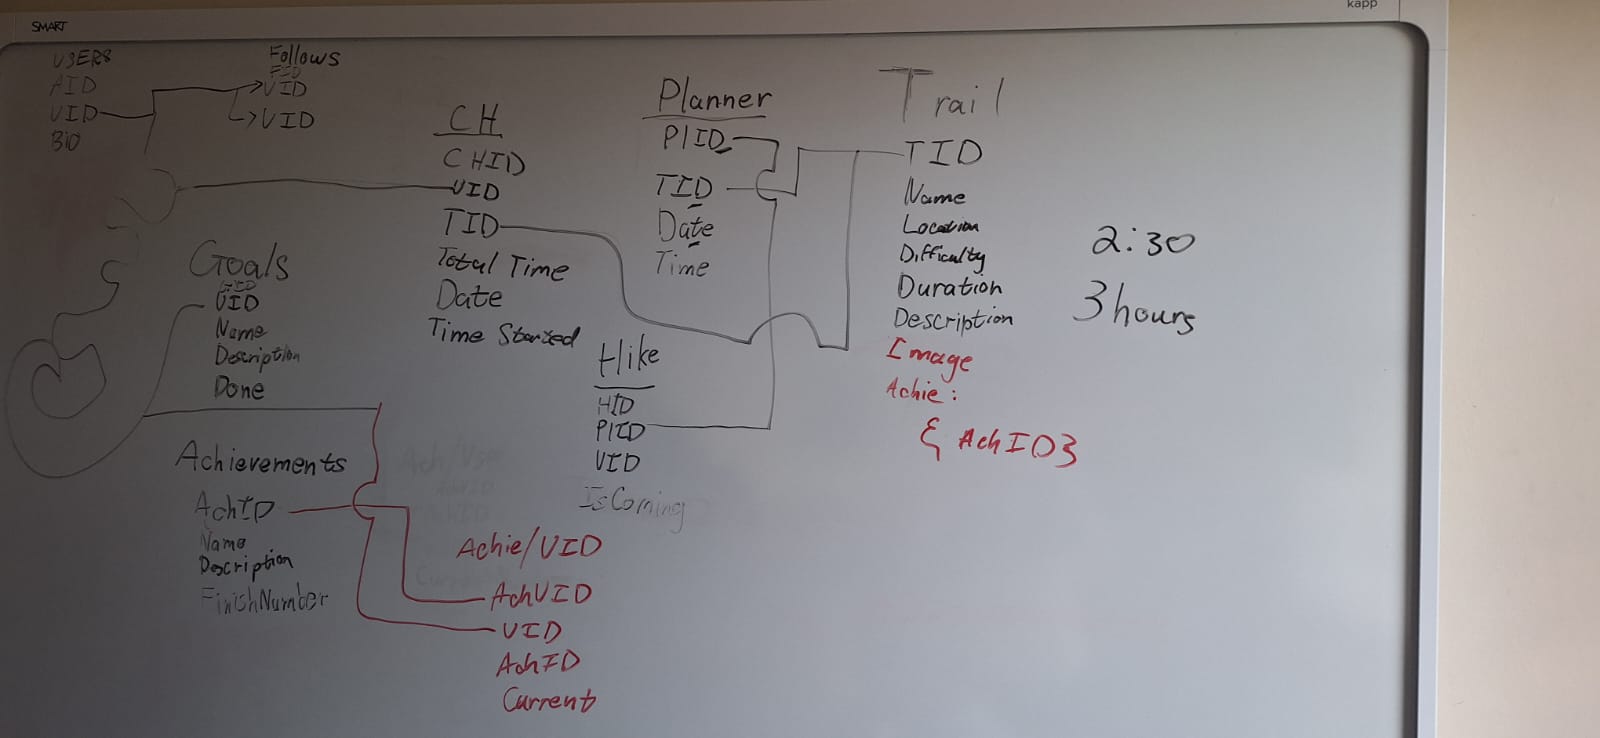 SMART
kapp
USERS
AID
UID
BIO
Follows
FID
UID
UID
CH
CHID
UID
TID
Total Time
Date
Time Started
Planner
PlID
TID
Date
Time
Trail
TID
Name
Location
Difficulty
Duration
Description
Image
Achie:
{ AchID}
2:30
3 hours
Goals
GID
UID
Name
Description
Done
Hike
HID
PlID
UID
IsComing
Achievements
AchID
Name
Description
FinishNumber
Achie/UID
AchUID
UID
AchID
Current